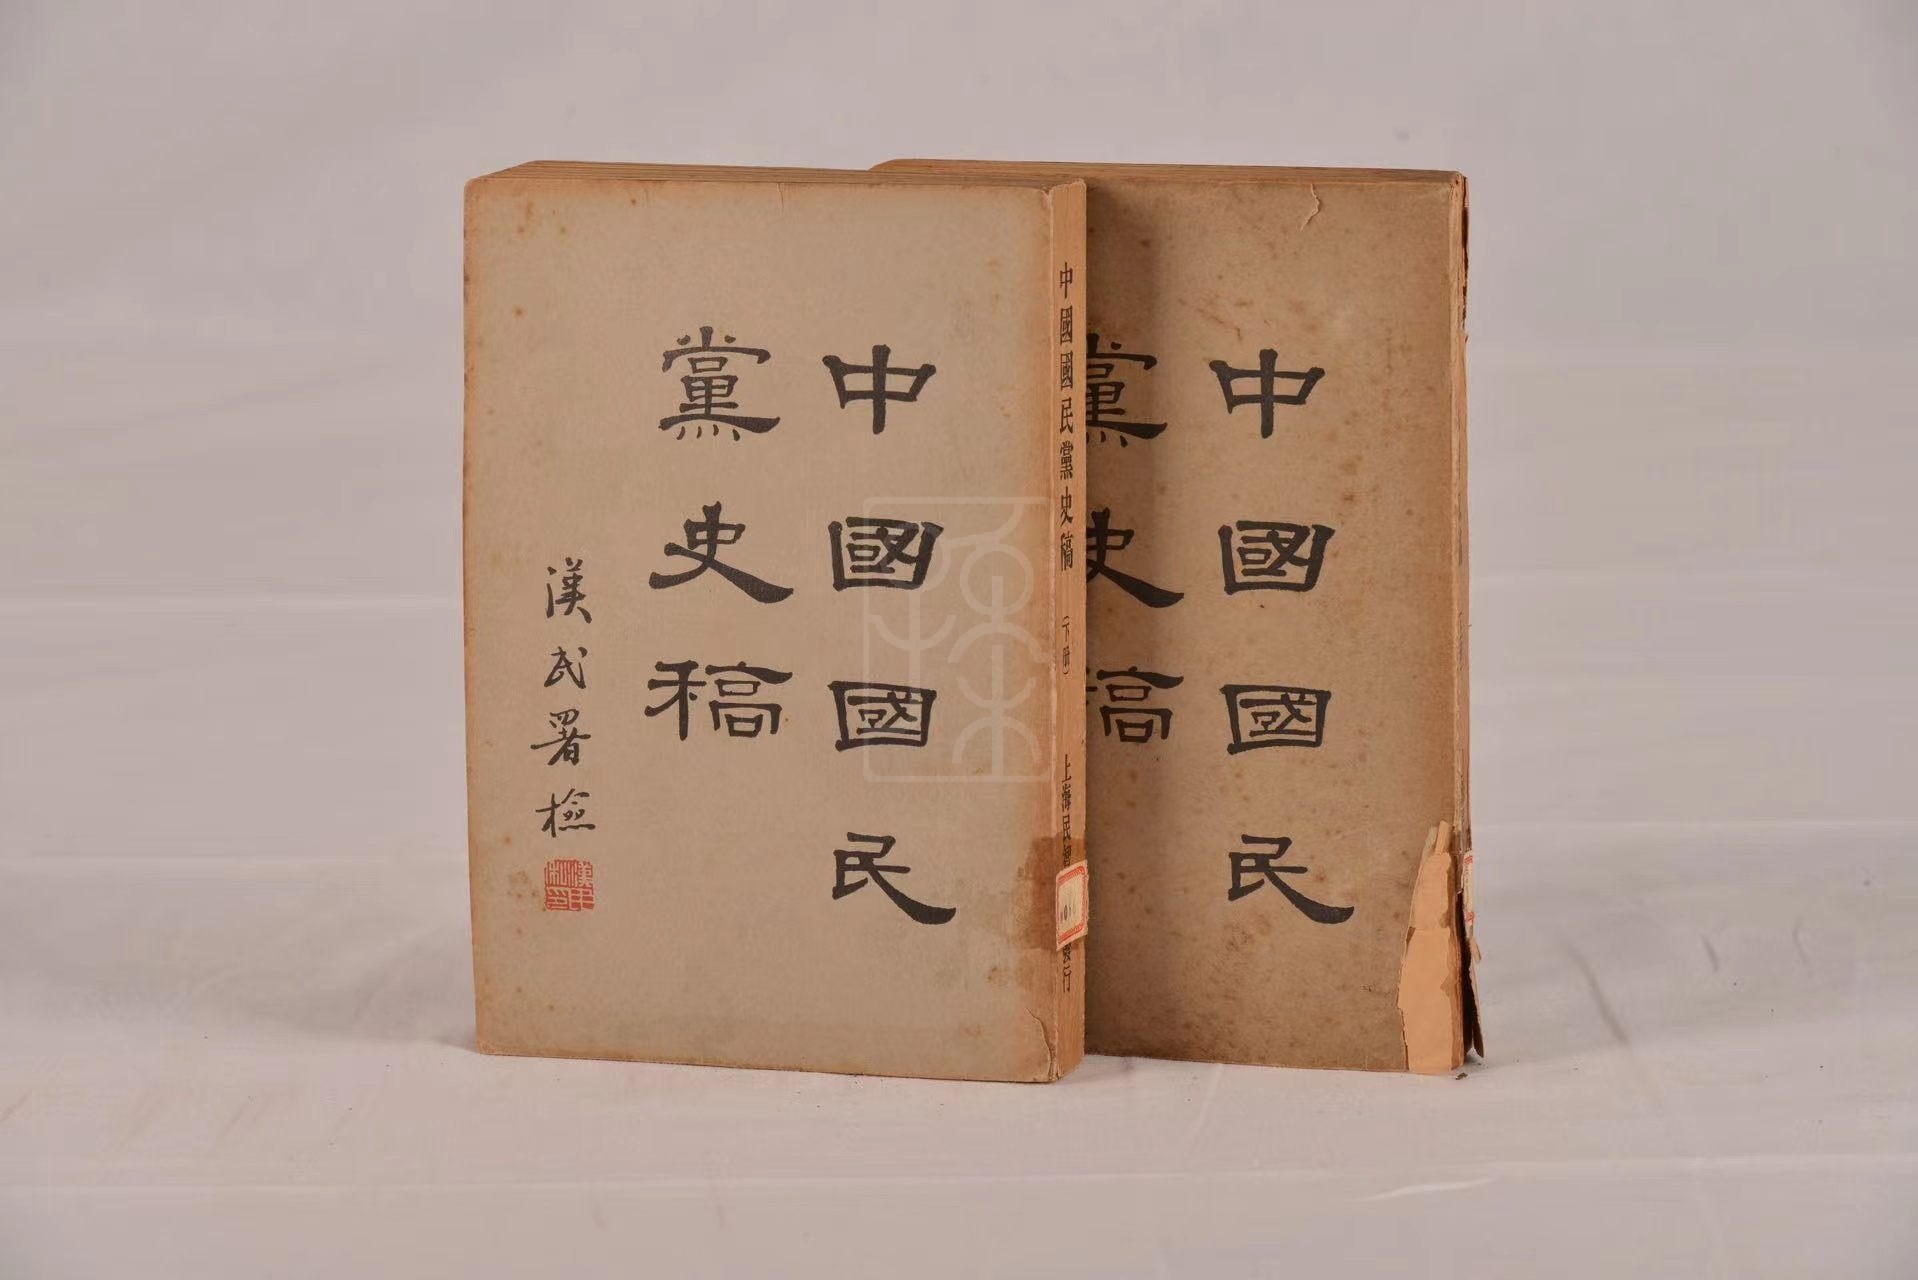 中國國民
黨史稿
漢民署檢
中國國民黨史稿 (下冊) 上海民智
發行
中國國民
黨史稿